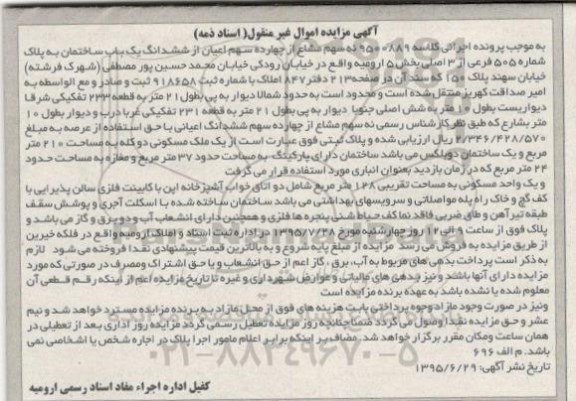 آگهی مزایده اموال غیر منقول( اسناد ذمه)
به موجب پرونده اجرائی کلاسه ۹۵۰۰۸۸۹ نه سهم مشاع از چهارده سهم اعیان از ششدانگ یک باب ساختمان به پلاک
شماره ۵۰۵ فرعی از ۳ اصلی بخش ۵ ارومیه واقع در خیابان رودکی خیابان محمد حسین پور مصطفی (شهرک فرشته)
خیابان سهند پلاک ۱۵۰ که سند آن در صفحه ۲۱۳ دفتر ۸۴۷ املاک با شماره ثبت ۹۱۸۶۵۸ ثبت و صادر و مع الواسطه به
امیر صداقت کهریز منتقل شده است و محدود است به حدود شمالا دیوار به پی بطول ۲۱ متر به قطعه ۲۳۳ تفکیکی شرقا
دیواریست بطول ۱۰ متر به شش اصلی جنوبا دیوار به پی بطول ۲۱ متر به قطعه ۲۳۱ تفکیکی غربا درب و دیوار بطول ۱۰
متر بشارع که طبق نظر کارشناس رسمی نه سهم مشاع از چهارده سهم ششدانگ اعیانی با حق استفاده از عرصه به مبلغ
۲/۳۴۶/۴۲۸/۵۷۰ ریال ارزیابی شده و پلاک ثبتی فوق عبارت است از یک ملک مسکونی دو کله به مساحت ۲۱۰ متر
مربع و یک ساختمان دوبلکس می باشد ساختمان دارای پارکینگ به مساحت حدود ۳۷ متر مربع و مغازه به مساحت حدود
۲۴ متر مربع که در زمان بازدید بعنوان انباری مورد استفاده قرار می گرفت
و یک واحد مسکونی به مساحت تقریبی ۱۲۸ متر مربع شامل دو اتاق خواب آشپزخانه اپن با کابینت فلزی سالن پذیرایی با
کف گچ و خاک راه پله موصلاتی و سرویسهای بهداشتی می باشد ساختمان ساخته شده با اسکلت آجری و پوشش سقف
طبقه تیر آهن و طاق ضربی فاقد نما کف حیاط شنی پنجره ها فلزی و همچنین دارای انشعاب آب و دو برق و گاز می باشد و
پلاک فوق از ساعت ۹ الی ۱۲ روز چهارشنبه مورخ ۱۳۹۵/۷/۲۸ در اداره ثبت اسناد و املاک ارومیه واقع در فلکه خیرین
از طریق مزایده به فروش می رسد مزایده از مبلغ پایه شروع و به بالاترین قیمت پیشنهادی نقدا فروخته می شود لازم
به ذکر است پرداخت بدهی های مربوط به آب، برق، گاز اعم از حق انشعاب و یا حق اشتراک و مصرف در صورتی که مورد
مزایده دارای آنها باشد و نیز بدهی های مالیاتی و عوارض شهرداری و غیره تا تاریخ مزایده اعم از اینکه رقم قطعی آن
معلوم شده یا نشده باشد به عهده برنده مزایده است
و نیز در صورت وجود مازاد وجوه پرداختی بابت هزینه های فوق از محل مازاد به برنده مزایده مسترد خواهد شد و نیم
عشر و حق مزایده نقدا وصول می گردد ضمنا چنانچه روز مزایده تعطیل رسمی گردد مزایده روز اداری بعد از تعطیلی در
همان ساعت و مکان مقرر برگزار خواهد شد. مضاف بر اینکه برابر اعلام مامور اجرا پلاک در اجاره شخص یا اشخاصی نمی
باشد. م الف ۶۹۶
تاریخ نشر آگهی: ۱۳۹۵/۶/۲۹
کفیل اداره اجراء مفاد اسناد رسمی ارومیه
۰۲۱-۸۸۳۴۹۶۷۰-۵